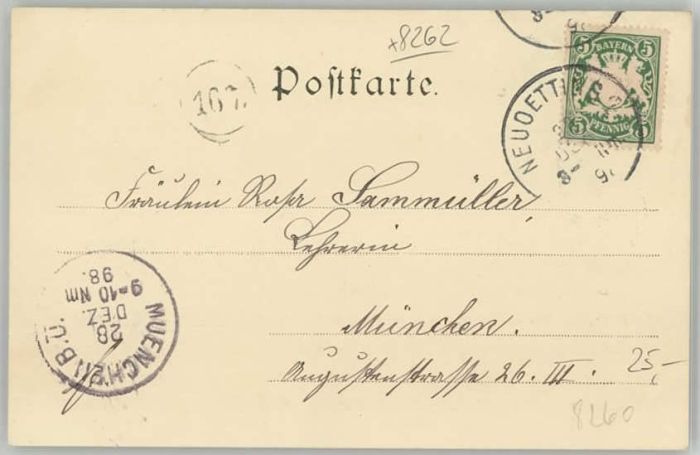 x8262
Postkarte.
167.
5 BAYERN 5
5 PFENNIG 5
NEUOETTI
Fräulein Rosa Sammüller,
Lehrerin
München.
Augustenstrasse 26. III.
25,-
8260
MUENCHEN B.O.
28
DEZ.
9-10 Nm
98.